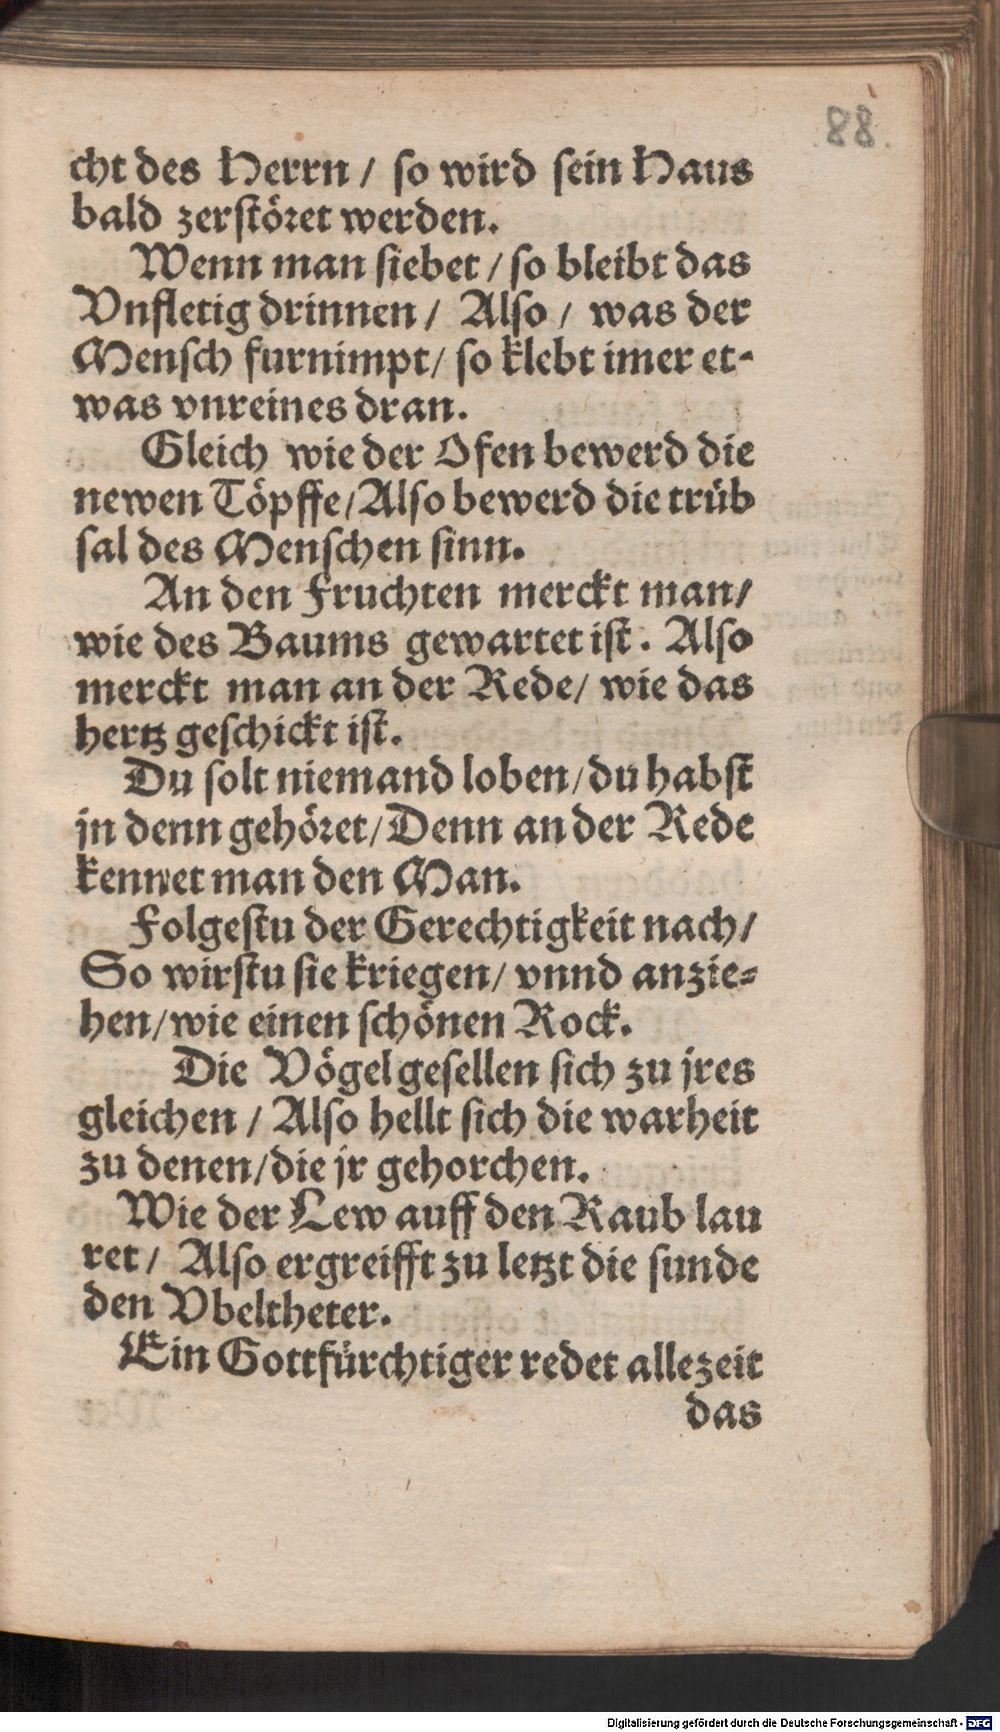 88.
cht des Herrn / so wird sein Haus
bald zerstöret werden.
Wenn man siebet / so bleibt das
Vnfletig drinnen / Also / was der
Mensch furnimpt / so klebt imer et-
was vnreines dran.
Gleich wie der Ofen bewerd die
newen Töpffe / Also bewerd die trüb
sal des Menschen sinn.
An den Fruchten merckt man /
wie des Baums gewartet ist. Also
merckt man an der Rede / wie das
hertz geschickt ist.
Du solt niemand loben / du habst
jn denn gehöret / Denn an der Rede
kennet man den Man.
Folgestu der Gerechtigkeit nach /
So wirstu sie kriegen / vnnd anzie-
hen / wie einen schönen Rock.
Die Vögel gesellen sich zu jres
gleichen / Also hellt sich die warheit
zu denen / die jr gehorchen.
Wie der Lew auff den Raub lau
ret / Also ergreifft zu letzt die sunde
den Vbeltheter.
Ein Gottfürchtiger redet allezeit
das
Digitalisierung gefördert durch die Deutsche Forschungsgemeinschaft - DFG